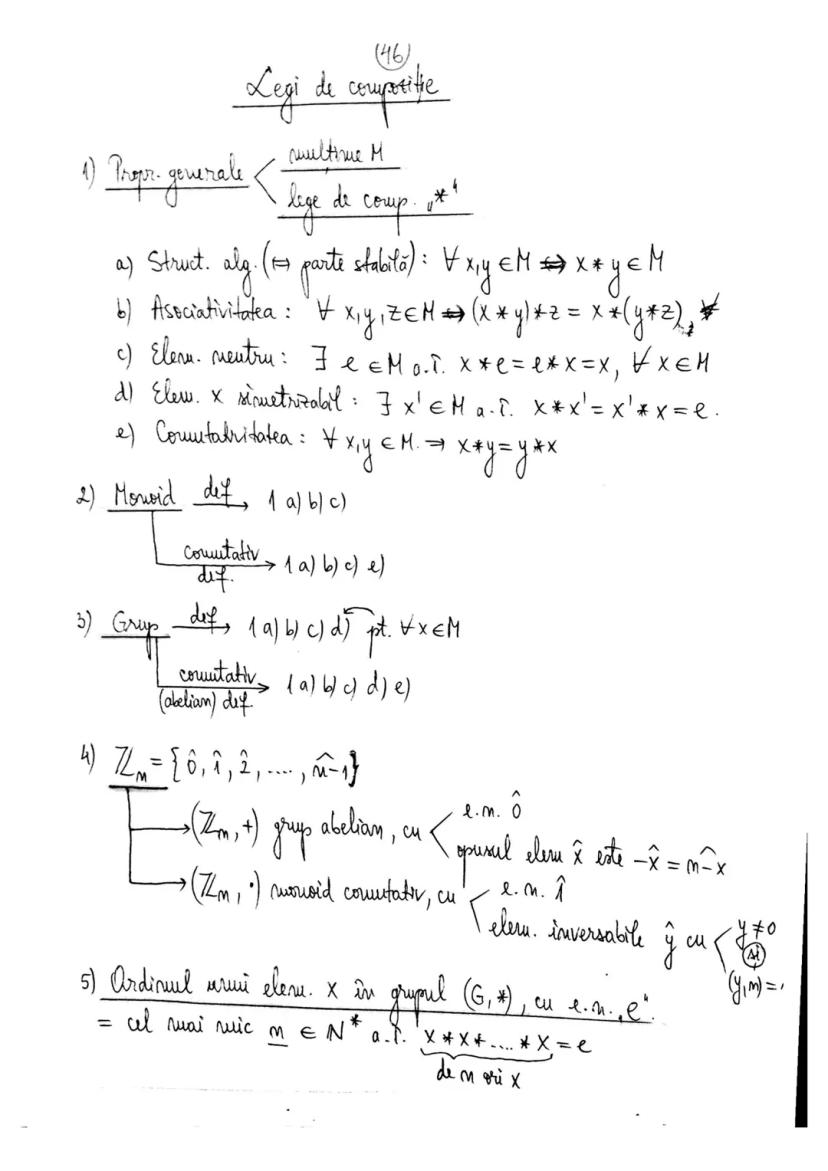 (46)
Legi de compoziție
1) Propr. generale < mulțime M
lege de comp. „*"
a) Struct. alg. (⇔ parte stabilă): ∀ x,y ∈ M ⇔ x * y ∈ M
b) Asociativitatea: ∀ x,y,z ∈ M ⇔ (x * y) * z = x * (y * z)
c) Elem. neutru: ∃ e ∈ M a.î. x * e = e * x = x, ∀ x ∈ M
d) Elem. x simetrizabil: ∃ x' ∈ M a.î. x * x' = x' * x = e.
e) Comutativitatea: ∀ x,y ∈ M. ⇒ x * y = y * x
2) Monoid def→ 1 a) b) c)
comutativ def.→ 1 a) b) c) e)
3) Grup def→ 1 a) b) c) d) pt. ∀ x ∈ M
comutativ (abelian) def.→ 1 a) b) c) d) e)
4) ℤₙ = {0̂, 1̂, 2̂, ...., n-1̂}
→ (ℤₙ, +) grup abelian, cu < e.n. 0̂
opusul elem x̂ este -x̂ = n-x̂
→ (ℤₙ, ·) monoid comutativ, cu < e.n. 1̂
elem. inversabile ŷ cu < y ≠ 0
și
(y,n) =
5) Ordinul unui elem. x în grupul (G, *), cu e.n. „e"
= cel mai mic n ∈ N* a.î. x * x * .... * x = e
de n ori x